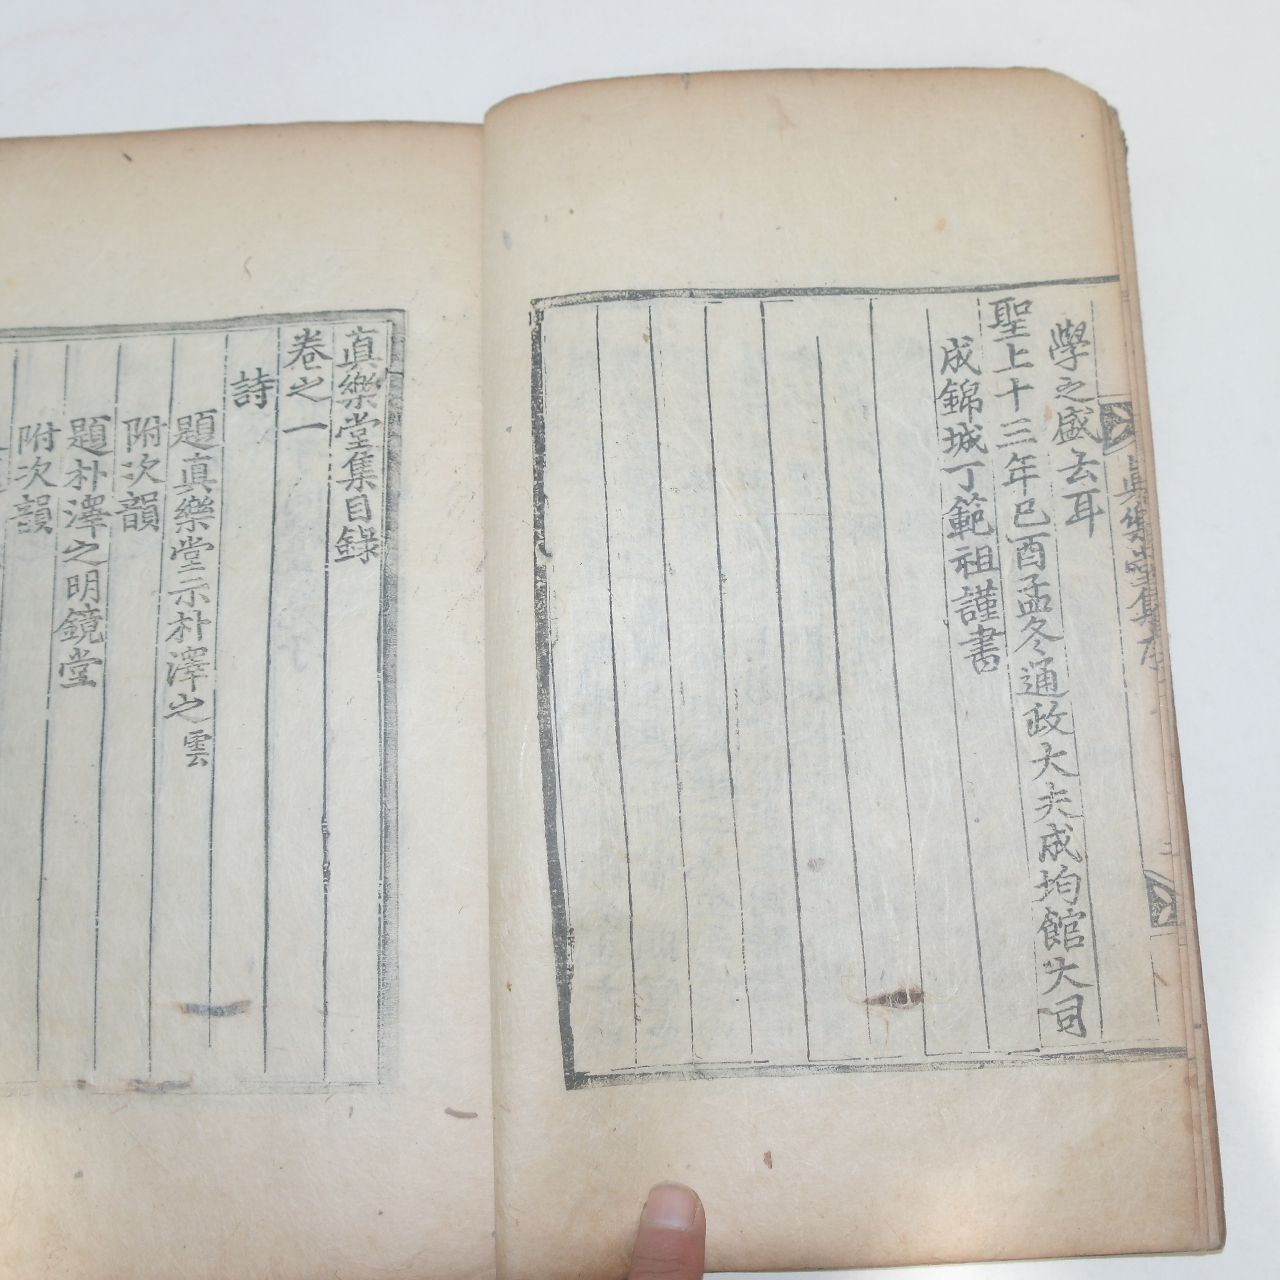 學之盛云耳
聖上十三年己酉孟冬通政大夫成均館大司
成錦城丁範祖謹書
眞樂堂集序
二
眞樂堂集目錄
卷之一
詩
題眞樂堂示朴澤之雲
附次韻
題朴澤之明鏡堂
附次韻